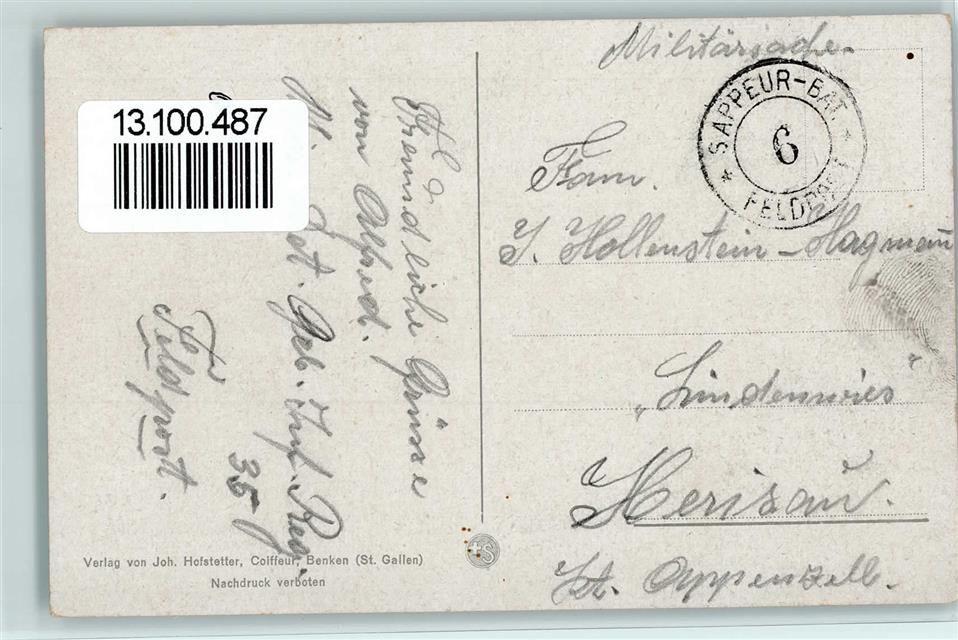 Militärsache.
SAPPEUR-BAT.
6
FELDPOST
13.100.487
Fam.
J. Hollenstein-Hagmañ
„Lindenwies"
Herisau.
Kt. Appenzell.
Freundliche Grüsse
von
Geb. Inf. Reg.
35
Feldpost.
Verlag von Joh. Hofstetter, Coiffeur, Benken (St. Gallen)
Nachdruck verboten